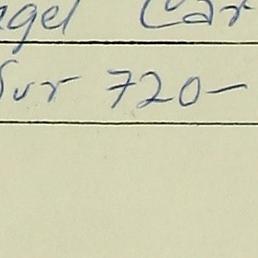 gel Car
Sur 720-